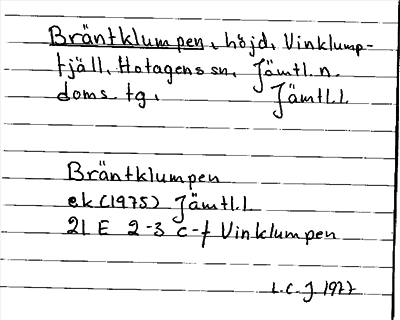 Bräntklumpen, höjd, Vinklump-
fjäll, Hotagens sn, Jämtl. n.
doms tg, Jämtl. l
Bräntklumpen
ek (1975) Jämtl. l
21 E 2-3 c-f Vinklumpen
L.C.J 1977